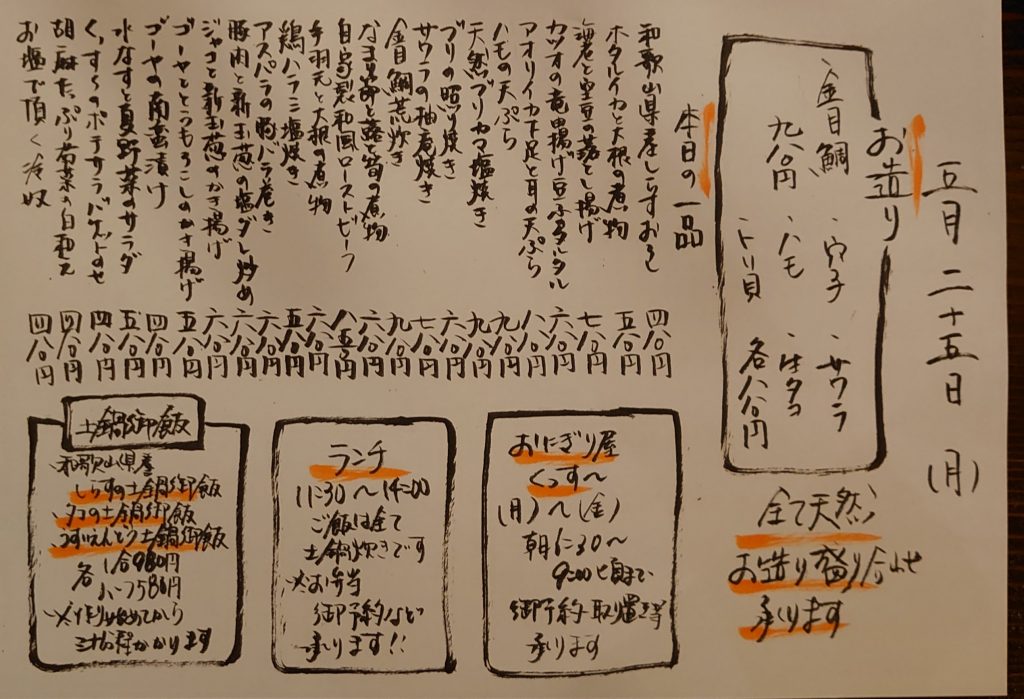 五月二十五日(月)
お造り
・金目鯛 ・穴子 ・サワラ
・ハモ ・生タコ
九八〇円 ・トリ貝 各八八〇円
全て天然
お造り盛り合わせ
承ります
本日の一品
和歌山県産しらすおろし 四八〇円
ホタルイカと大根の煮物 五八〇円
海老と空豆の落とし揚げ 七八〇円
カツオの竜田揚げ豆ふタルタル 六八〇円
アオリイカ下足と耳の天ぷら 八八〇円
ハモの天ぷら 九八〇円
天然ブリカマ塩焼き 九八〇円
ブリの照り焼き 六八〇円
サワラの柚庵焼き 七八〇円
金目鯛荒炊き 九八〇円
なま節と蕗と筍の煮物 六八〇円
自家製和風ローストビーフ 八五〇円
手羽元と大根の煮物 六八〇円
鶏ハラミ塩焼き 五八〇円
アスパラの豚バラ巻き 六八〇円
豚肉と新玉葱の塩ダレ炒め 六八〇円
ジャコと新玉葱のかき揚げ 六八〇円
ゴーヤととうもろこしのかき揚げ 五八〇円
ゴーヤの南蛮漬け 四八〇円
水なすと夏野菜のサラダ 五八〇円
くっす〜のポテサラバゲットのせ 四八〇円
胡麻たっぷり若菜の白和え 四八〇円
お塩で頂く冷奴 四八〇円
おにぎり屋
くっす〜
(月)〜(金)
朝6:30〜
9:00頃まで
御予約・取り置き等
承ります
ランチ
11:30〜14:00
ご飯は全て
土鍋炊きです
※お弁当
御予約など
承ります!!
土鍋御飯
・和歌山県産
しらすの土鍋御飯
・タコの土鍋御飯
・うすいえんどう土鍋御飯
各 1合980円
ハーフ580円
※作り始めてから
三十分程かかります